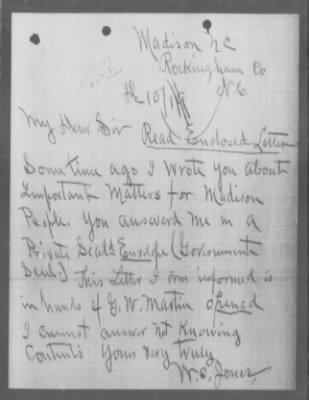 Madison NC
Rockingham Co
N.C
My Dear Sir Read Enclosed Letter
Some time ago I wrote you about
Important Matters for Madison
People. You answerd me in a
Private Seald Envelope (Government
Seal.) This Letter I am informed is
in hands of G. W. Martin opened
I cannot answer not Knowing
Contents Yours Very Truly
W. C. Jones,